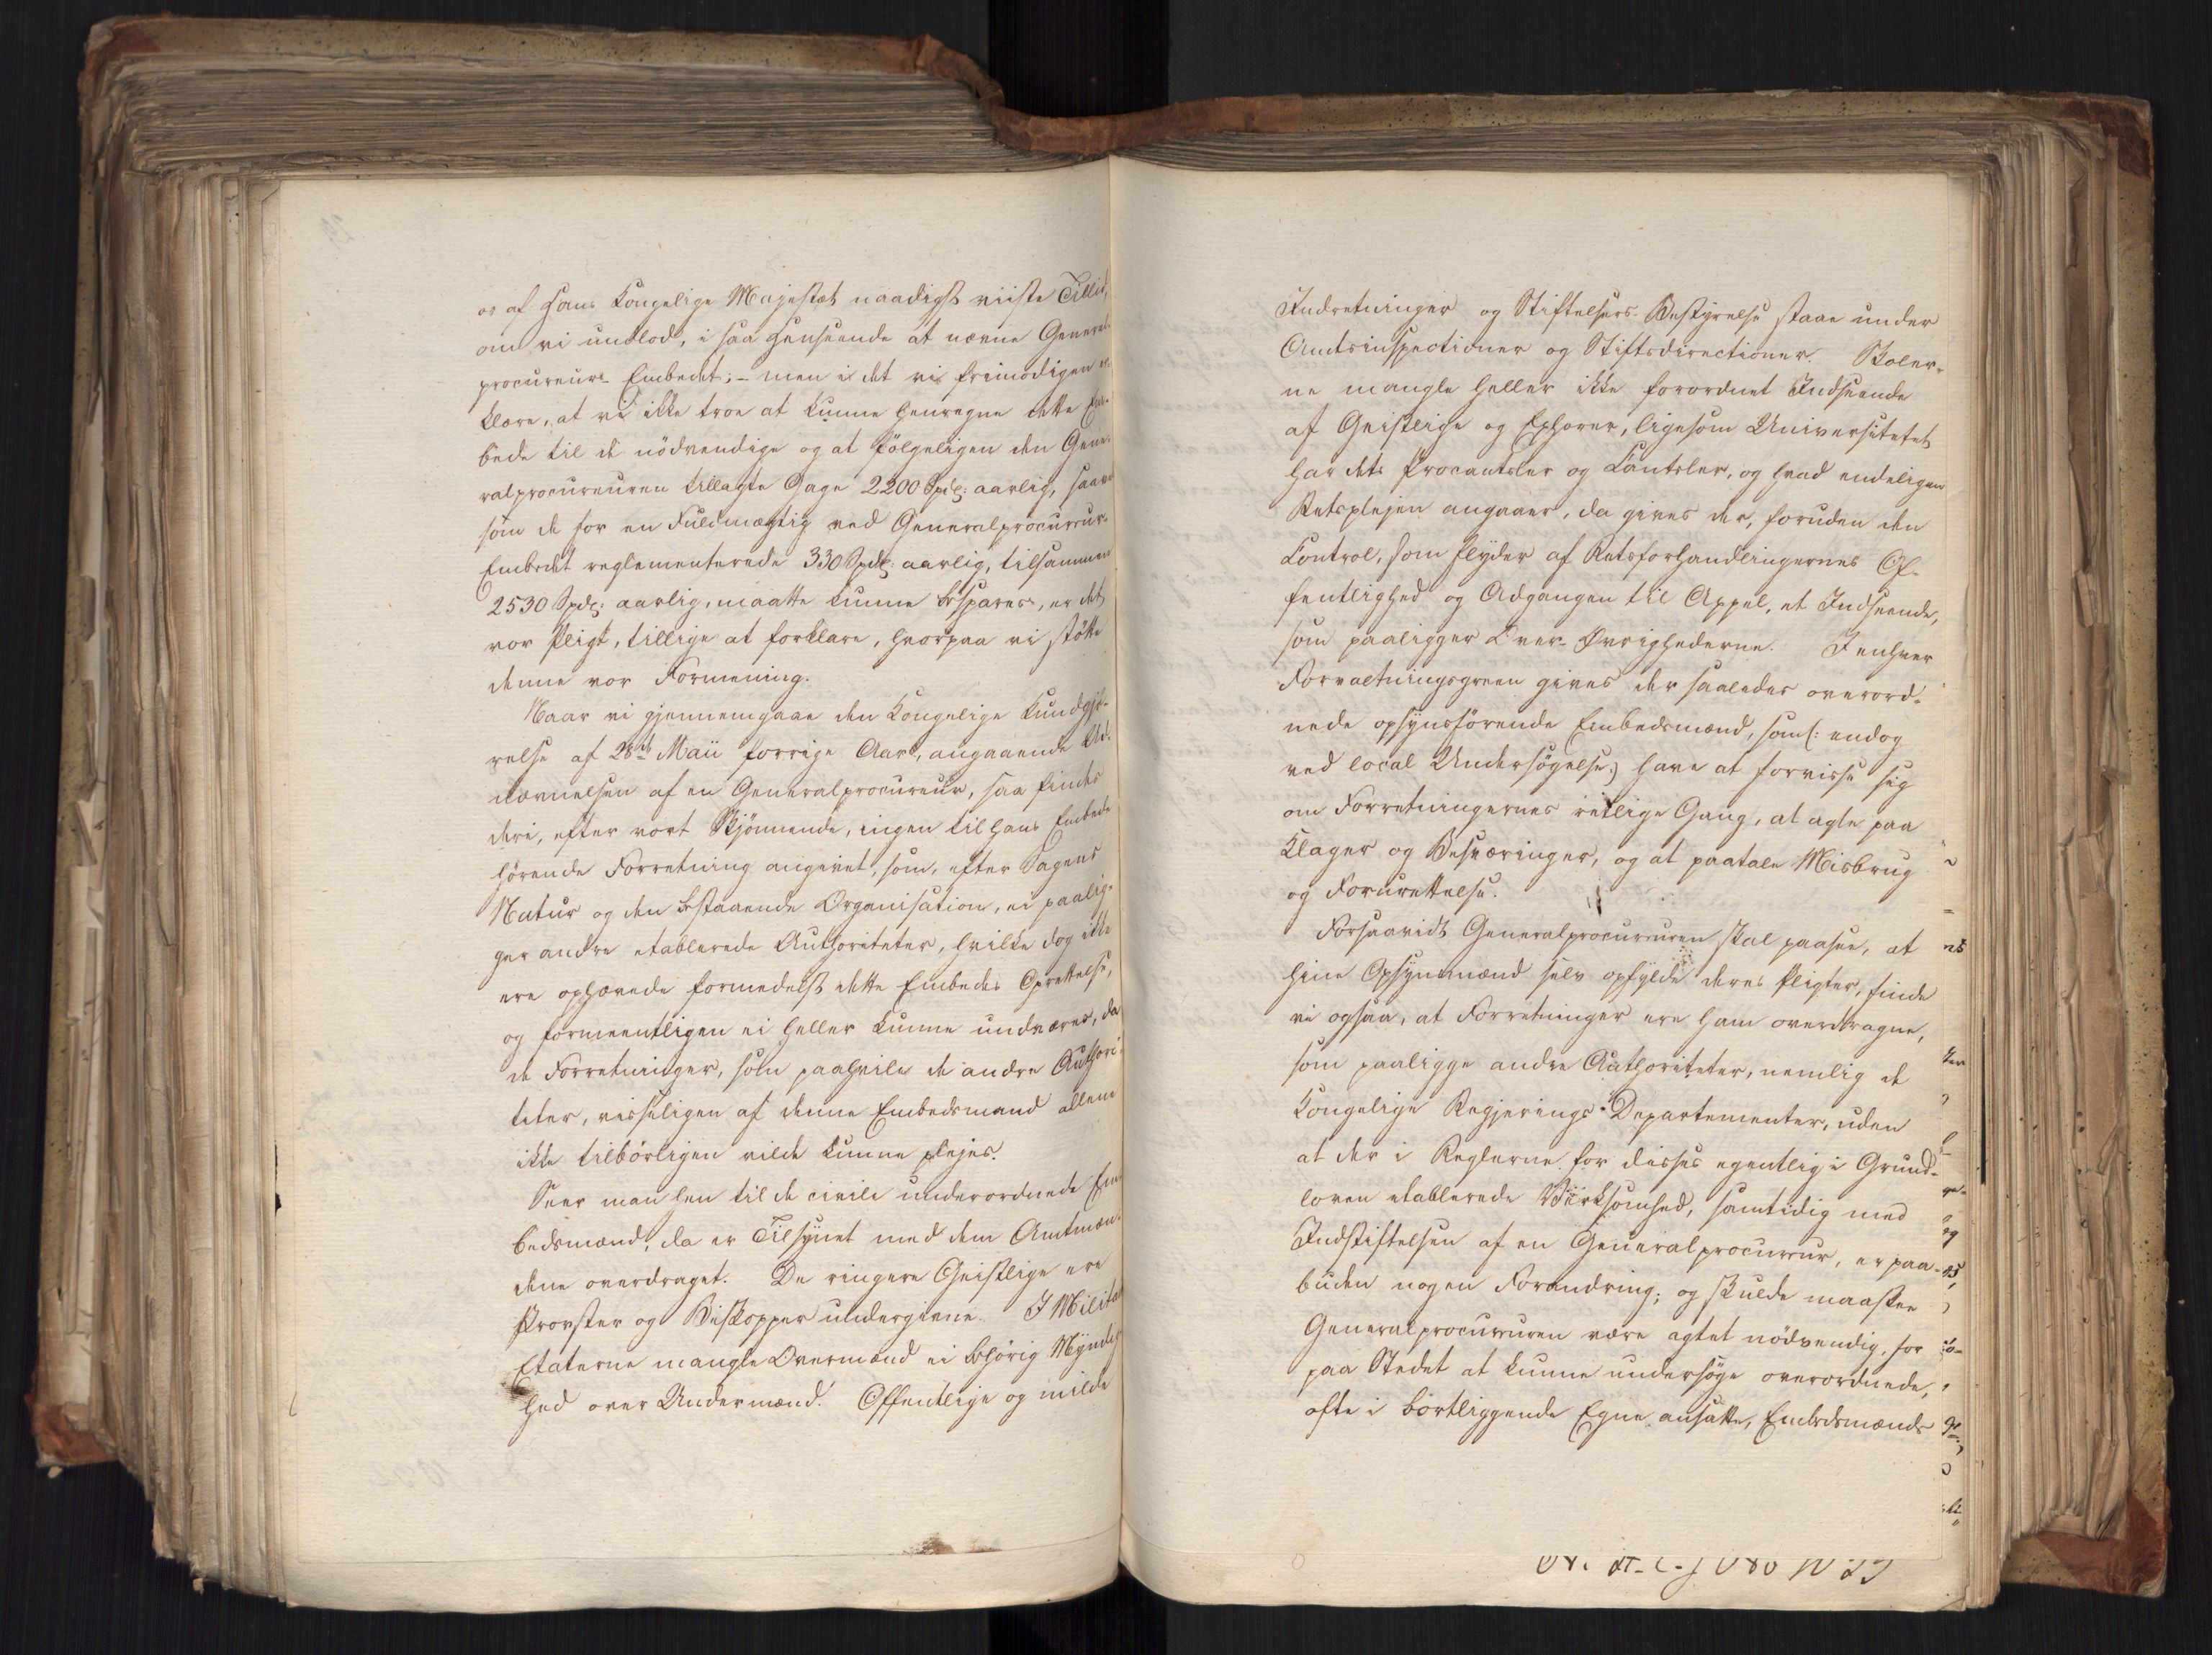 os af Hans Kongelige Majestæt naadigst viiste Tillid,
om vi undlod, i saa Henseende at nævne General-
procureurs-Embedet; - men i det vi frimodigen er-
klære, at vi ikke troe at kunne henregne dette Em-
bede til de nödvendige og at fölgeligen den Gene-
ralprocureuren tillagte Gage 2200 Spdlr: aarlig, saavel
som de for en Fuldmægtig ved Generalprocureur-
Embedet reglementerede 330 Spdlr: aarlig, tilsammen
2530 Spdlr: aarlig, maatte kunne besparers, er det
vor Pligt, tillige at forklare, hvorpaa vi stötte
denne vor Formening.
Naar vi gjennemgaae den Kongelige Kundgjö-
relse af 28de Maii forrige Aar, angaaende Ud-
nævnelsen af en Generalprocureur, saa findes
deri, efter vort Skjönnende, ingen til hans Embede
hörende Forretning angivet, som, efter Sagens
Natur og den bestaaende Organisation, ei paalig-
ger andre etablerede Authoriteter, hvilke dog ikke
ere ophævede formedelst dette Embedes Oprettelse,
og formeentligen ei heller kunne undværes, da
de Forretninger, som paahvile de andre Authori-
teter, visseligen af denne Embedsmand allene
ikke tilbörligen vilde kunne plejes.
Seer man hen til de civile underordnede Em-
bedsmænd, da er Tilsynet med dem Amtmæn-
dene overdraget. De ringere Geistlige ere
Provster og Biskopper undergivne. I Militair
Etaterne mangle Overmænd ei behörig Myndig-
hed over Undermænd. Offentlige og milde
Indretninger og Stiftelsers Bestyrelse staae under
Amtsinspectioner og Stiftsdirectioner. Skoler-
ne mangle heller ikke forordnet Indseende
af Geistlige og Ephorer, ligesom Universitetet
har dets Procantsler og Cantsler, og hvad endeligen
Retsplejen angaaer, da gives der, foruden den
Control, som flyder af Retsforhandlingernes Of-
fentlighed og Adgangen til Appel, et Indseende,
som paaligger Over-Övrighederne. I enhver
Forvaltningsgreen gives der saaledes overord-
nede opsynsförende Embedsmænd, som (: endog
ved local Undersögelse :) have at forvisse sig
om Forretningernes rétlige Gang, at agte paa
Klager og Besværinger, og at paatale Misbrug
og Forurettelse.
Forsaavidt Generalprocureuren skal paasee, at
hine Opsynsmænd selv opfylde deres Pligter, finde
vi ogsaa, at Forretninger ere ham overdragne,
som paaligge andre Authoriteter, nemlig de
Kongelige Regjerings-Departementer, uden
at der i Reglerne for disses egentlig i Grund-
loven etablerede Virksomhed, samtidig med
Indstiftelsen af en Generalprocureur, er paa-
buden nogen Forandring; og skulde maaskee
Generalprocureuren være agtet nödvendig, for
paa Stedet at kunne undersöge overordnede,
ofte i bortliggende Egne ansatte, Embedsmænds